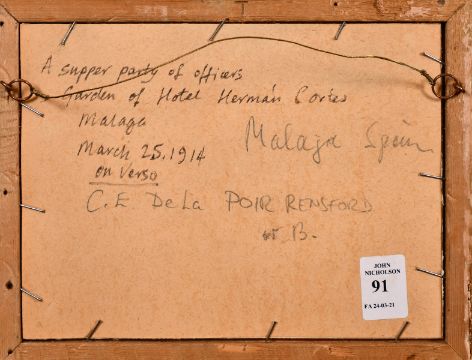 A supper party of officers
Garden of Hotel Hermán Cortes
Malaga
March 25. 1914
on verso
Malaga Spain
C. E De La POIR RENSFORD
B.
JOHN
NICHOLSON
91
FA 24-03-21